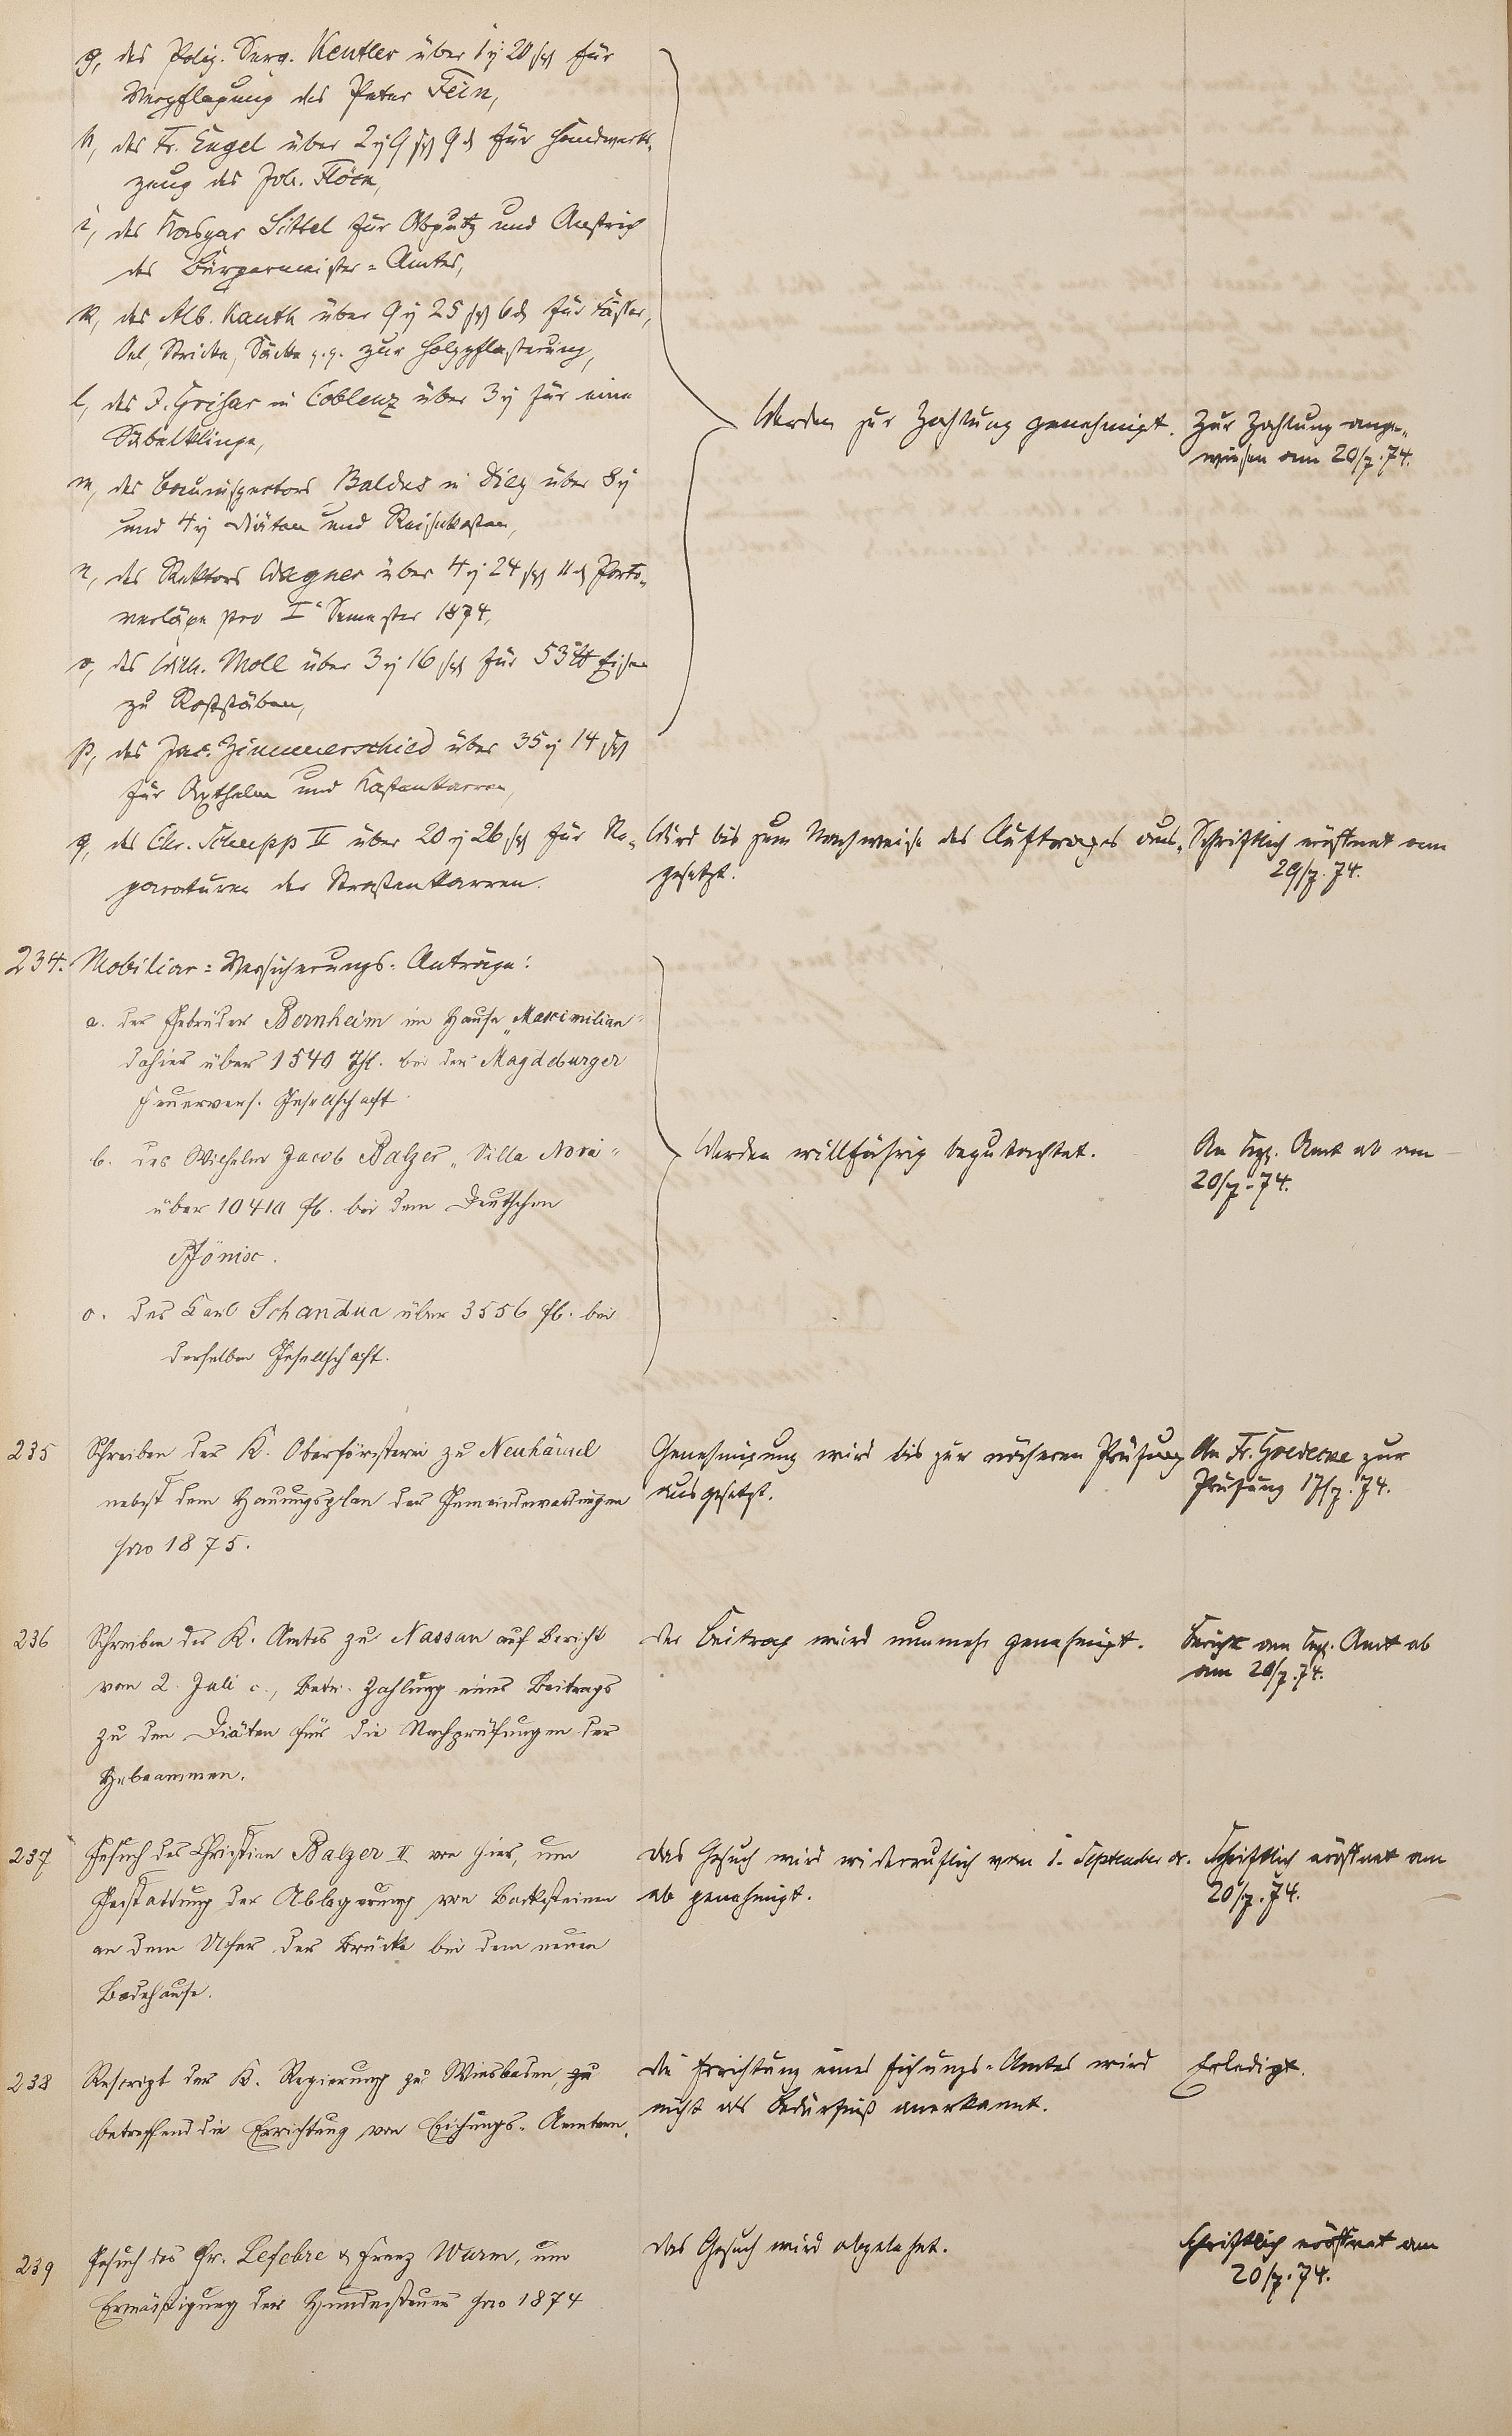 g, des Poliz. Serg. Kentler über 1 20 für
Verpflegung des Peter Fein,
h, des Fr. Engel über 2 9 9 für Handwerks-
zeug des Joh. Flöck,
i, des Kaspar Sittel für Abputz und Anstrich
des Bürgermeister-Amtes,
k, des Alb. Kauth über 9 25 6 für Fässer,
Oel, Stricke, Säcke p.p. zur Holzpflasterung,
l, des J. Grisar in Coblenz über 3 für eine
Säbelklinge,
Werden zur Zahlung genehmigt.
Zur Zahlung ange-
wiesen am 20/7.74.
m, des Bauinspectors Baldus in Diez über 8
und 4 Diäten und Reisekosten,
n, des Rektors Wagner über 4 24 11 Porto-
verläge pro I Semester 1874,
o, des Wilh. Moll über 3 16 für 53 ℔ Eisen
zu Roststäben,
p, des Jac. Zimmerschied über 35 14
für Axthelm und Kastenkarren,
q, des Chr. Schupp II über 20 26 für Re-
paraturen der Strassenkarren.
Wird bis zum Nachweise des Auftrages aus-
gesetzt.
Schriftlich eröffnet am
29/7.74.
234. Mobiliar-Versicherungs-Anträge:
a. der Gebrüder Bernheim im Hause „Maximilian"
dahier über 1540 Thl. bei der Magdeburger
Feuervers. Gesellschaft.
b. des Wilhelm Jacob Balzer „Villa Nova"
über 10410 fl. bei dem Deutschen
Phönix.
c. des Carl Schandua über 3556 fl. bei
derselben Gesellschaft.
Werden willfährig begutachtet.
An Kgl. Amt ab am
20/7.74.
235 Schreiben der K. Oberförsterei zu Neuhäusel
nebst dem Hauungsplan der Gemeindewaldungen
pro 1875.
Genehmigung wird bis zur näheren Prüfung
ausgesetzt.
An Fr. Goedecke zur
Prüfung 17/7.74.
236 Schreiben des K. Amtes zu Nassau auf Bericht
vom 2. Juli c., betr. Zahlung eines Beitrags
zu den Diäten für die Nachprüfungen der
Hebeammen.
Der Beitrag wird nunmehr genehmigt.
Bericht an Kgl. Amt ab
am 20/7.74.
237 Gesuch des Christian Balzer II von hier, um
Gestattung der Ablagerung von Backsteinen
an dem Ufer der Brücke bei dem neuen
Badehause.
Das Gesuch wird widerruflich vom 1. September cr.
ab genehmigt.
Schriftlich eröffnet am
20/7.74.
238 Rescript der K. Regierung zu Wiesbaden, zu
betreffend die Errichtung von Eichungs-Aemtern.
Die Errichtung eines Eichungs-Amtes wird
nicht als Bedürfniß anerkannt.
Erledigt.
239 Gesuch des Fr. Lefebre & Franz Wurm, um
Ermäßigung der Hundesteuer pro 1874
Das Gesuch wird abgelehnt.
Schriftlich eröffnet am
20/7.74.